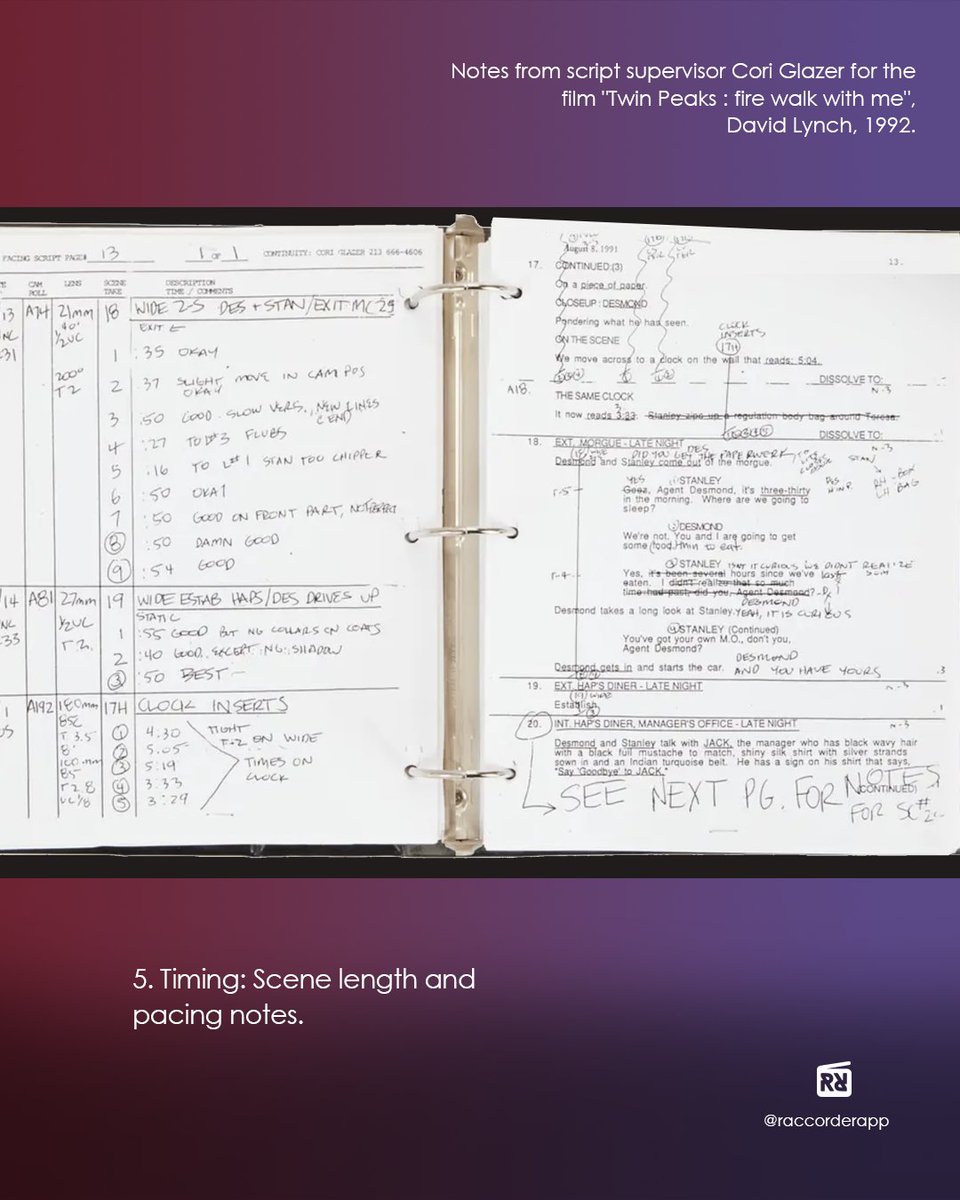 Notes from script supervisor Cori Glazer for the
film "Twin Peaks : fire walk with me",
David Lynch, 1992.
FACING SCRIPT PAGE# 13 1 OF 1 CONTINUITY: CORI GLAZER 213 666-4606
CAM ROLL LENS SCENE TAKE DESCRIPTION TIME / COMMENTS
A74 21mm 18 WIDE 2-S DES + STAN/EXIT MC 29
EXIT ←
1 :35 OKAY
200° T2
2 :37 SLIGHT MOVE IN CAM POS OKAY
3 :50 GOOD. SLOW VERS., NEW LINES
4 :27 TO L#3 FLUBS
5 :16 TO L#1 STAN TOO CHIPPER
6 :50 OKAY
7 :50 GOOD ON FRONT PART,
8 :50 DAMN GOOD
9 :54 GOOD
A81 27mm 19 WIDE ESTAB HAPS/DES DRIVES UP
STATIC
1 :55 GOOD BUT NG COLLARS ON COATS
2 :40 GOOD. EXCEPT NG SHADOW
3 :50 BEST
A192 180mm 17H CLOCK INSERTS
85C
T 3.5
8'
100mm
85
T2.8
1 4:30
2 5:05
3 5:19
4 3:33
5 3:29
TIGHT
ON WIDE
TIMES ON
CLOCK
August 8, 1991
13.
17. CONTINUED:(3)
On a piece of paper.
CLOSEUP: DESMOND
Pondering what he has seen.
CLOCK
INSERTS
17H
ON THE SCENE
We move across to a clock on the wall that reads: 5:04.
DISSOLVE TO:
A18. THE SAME CLOCK
It now reads 3:33. Stanley zips up a regulation body bag around Teresa.
DISSOLVE TO:
18. EXT. MORGUE - LATE NIGHT N-3
DES DID YOU GET THE PAPERWERK
Desmond and Stanley come out of the morgue. STAN
YES STANLEY
Geez, Agent Desmond, it's three-thirty
in the morning. Where are we going to
sleep?
DESMOND
We're not. You and I are going to get
some food. to eat.
STANLEY ISN'T IT CURIOUS WE DIDN'T REALIZE
Yes, it's been several hours since we've last
eaten. I didn't realize that so much
time had past, did you, Agent Desmond?
DESMOND
Desmond takes a long look at Stanley. YEAH, IT IS CURIOUS
STANLEY (Continued)
You've got your own M.O., don't you,
Agent Desmond?
DESMOND
Desmond gets in and starts the car. AND YOU HAVE YOURS .3
19. EXT. HAP'S DINER - LATE NIGHT N-3
Establish. .1
20. INT. HAP'S DINER, MANAGER'S OFFICE - LATE NIGHT N-3
Desmond and Stanley talk with JACK, the manager who has black wavy hair
with a black full mustache to match, shiny silk shirt with silver strands
sown in and an Indian turquoise belt. He has a sign on his shirt that says,
"Say 'Goodbye' to JACK."
(CONTINUED)
SEE NEXT PG. FOR NOTES
FOR SC#
5. Timing: Scene length and
pacing notes.
@raccorderapp